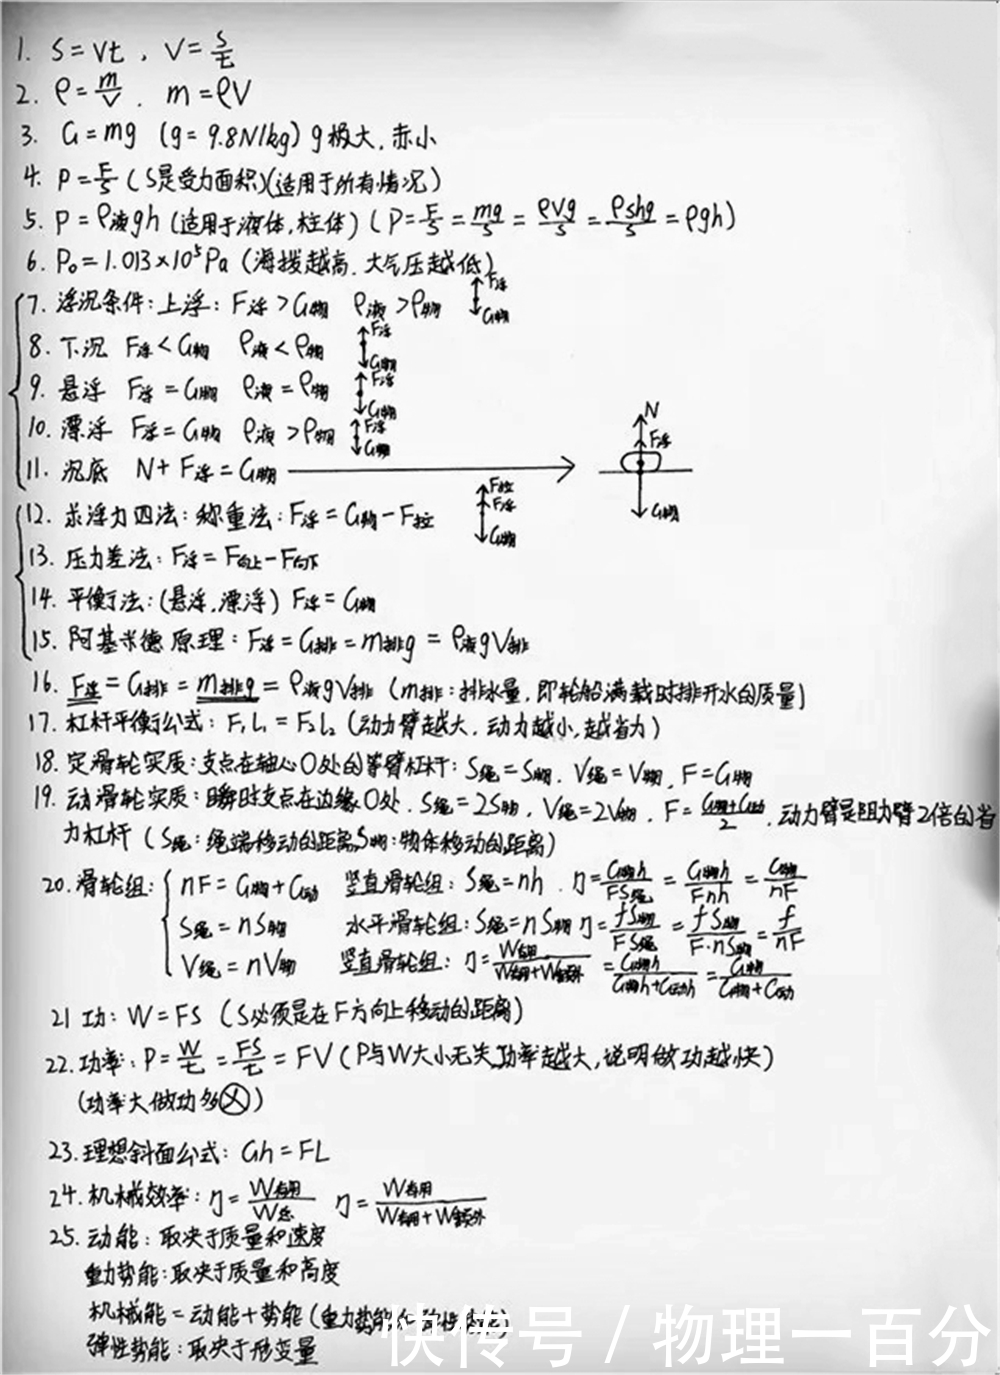 1. S=Vt, V=S/t
2. ρ=m/V. m=ρV
3. G=mg (g=9.8N/kg) g极大,赤小
4. P=F/S (S是受力面积)(适用于所有情况)
5. P=ρ液gh (适用于液体,柱体) (P=F/S=mg/S=ρVg/S=ρshg/S=ρgh)
6. P₀=1.013×10⁵Pa (海拔越高,大气压越低)
F浮
7. 浮沉条件:上浮:F浮>G物 ρ液>ρ物
G物
F浮
8. 下沉 F浮<G物 ρ液<ρ物
G物
F浮
9. 悬浮 F浮=G物 ρ液=ρ物
G物
F浮
10. 漂浮 F浮=G物 ρ液>ρ物
G物
N
F浮
11. 沉底 N+F浮=G物
G物
F拉
F浮
12. 求浮力四法:称重法:F浮=G物-F拉
G物
13. 压力差法:F浮=F向上-F向下
14. 平衡法:(悬浮,漂浮) F浮=G物
15. 阿基米德原理:F浮=G排=m排g=ρ液gV排
16. F浮=G排=m排g=ρ液gV排 (m排:排水量,即轮船满载时排开水的质量)
17. 杠杆平衡公式:F₁L₁=F₂L₂ (动力臂越大,动力越小,越省力)
18. 定滑轮实质:支点在轴心O处的等臂杠杆:S绳=S物. V绳=V物, F=G物
19. 动滑轮实质:瞬时支点在边缘O处. S绳=2S物, V绳=2V物. F=(G物+G动)/2. 动力臂是阻力臂2倍的省
力杠杆 (S绳:绳端移动的距离S物:物体移动的距离)
20. 滑轮组: nF=G物+G动 竖直滑轮组:S绳=nh. η=G物h/FS绳=G物h/Fnh=G物/nF
S绳=nS物 水平滑轮组:S绳=nS物 η=fS物/FS绳=fS物/F·nS物=f/nF
V绳=nV物 竖直滑轮组:η=W有用/(W有用+W额外)=G物h/(G物h+G动h)=G物/(G物+G动)
21 功:W=FS (S必须是在F方向上移动的距离)
22. 功率:P=W/t=FS/t=FV (P与W大小无关,功率越大,说明做功越快)
(功率大做功多ⓧ)
23. 理想斜面公式:Gh=FL
24. 机械效率:η=W有用/W总 η=W有用/(W有用+W额外)
25. 动能:取决于质量和速度
重力势能:取决于质量和高度
机械能=动能+势能(重力势能
弹性势能:取决于形变量
快传号/物理一百分